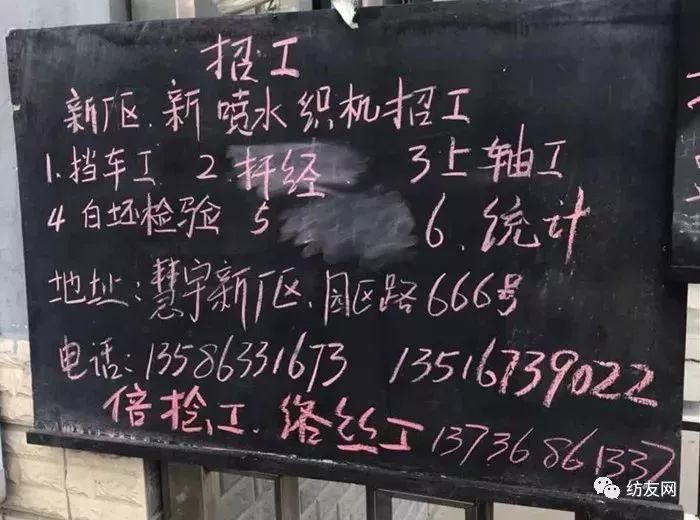 招工
新厂区.新喷水织机招工
1.挡车工 2 扦经 3上轴工
4白坯检验 5 6.统计
地址:慧宇新厂区.园区路666号
电话:13586331673 13516739022
倍捻工.络丝工 13736861337
纺友网